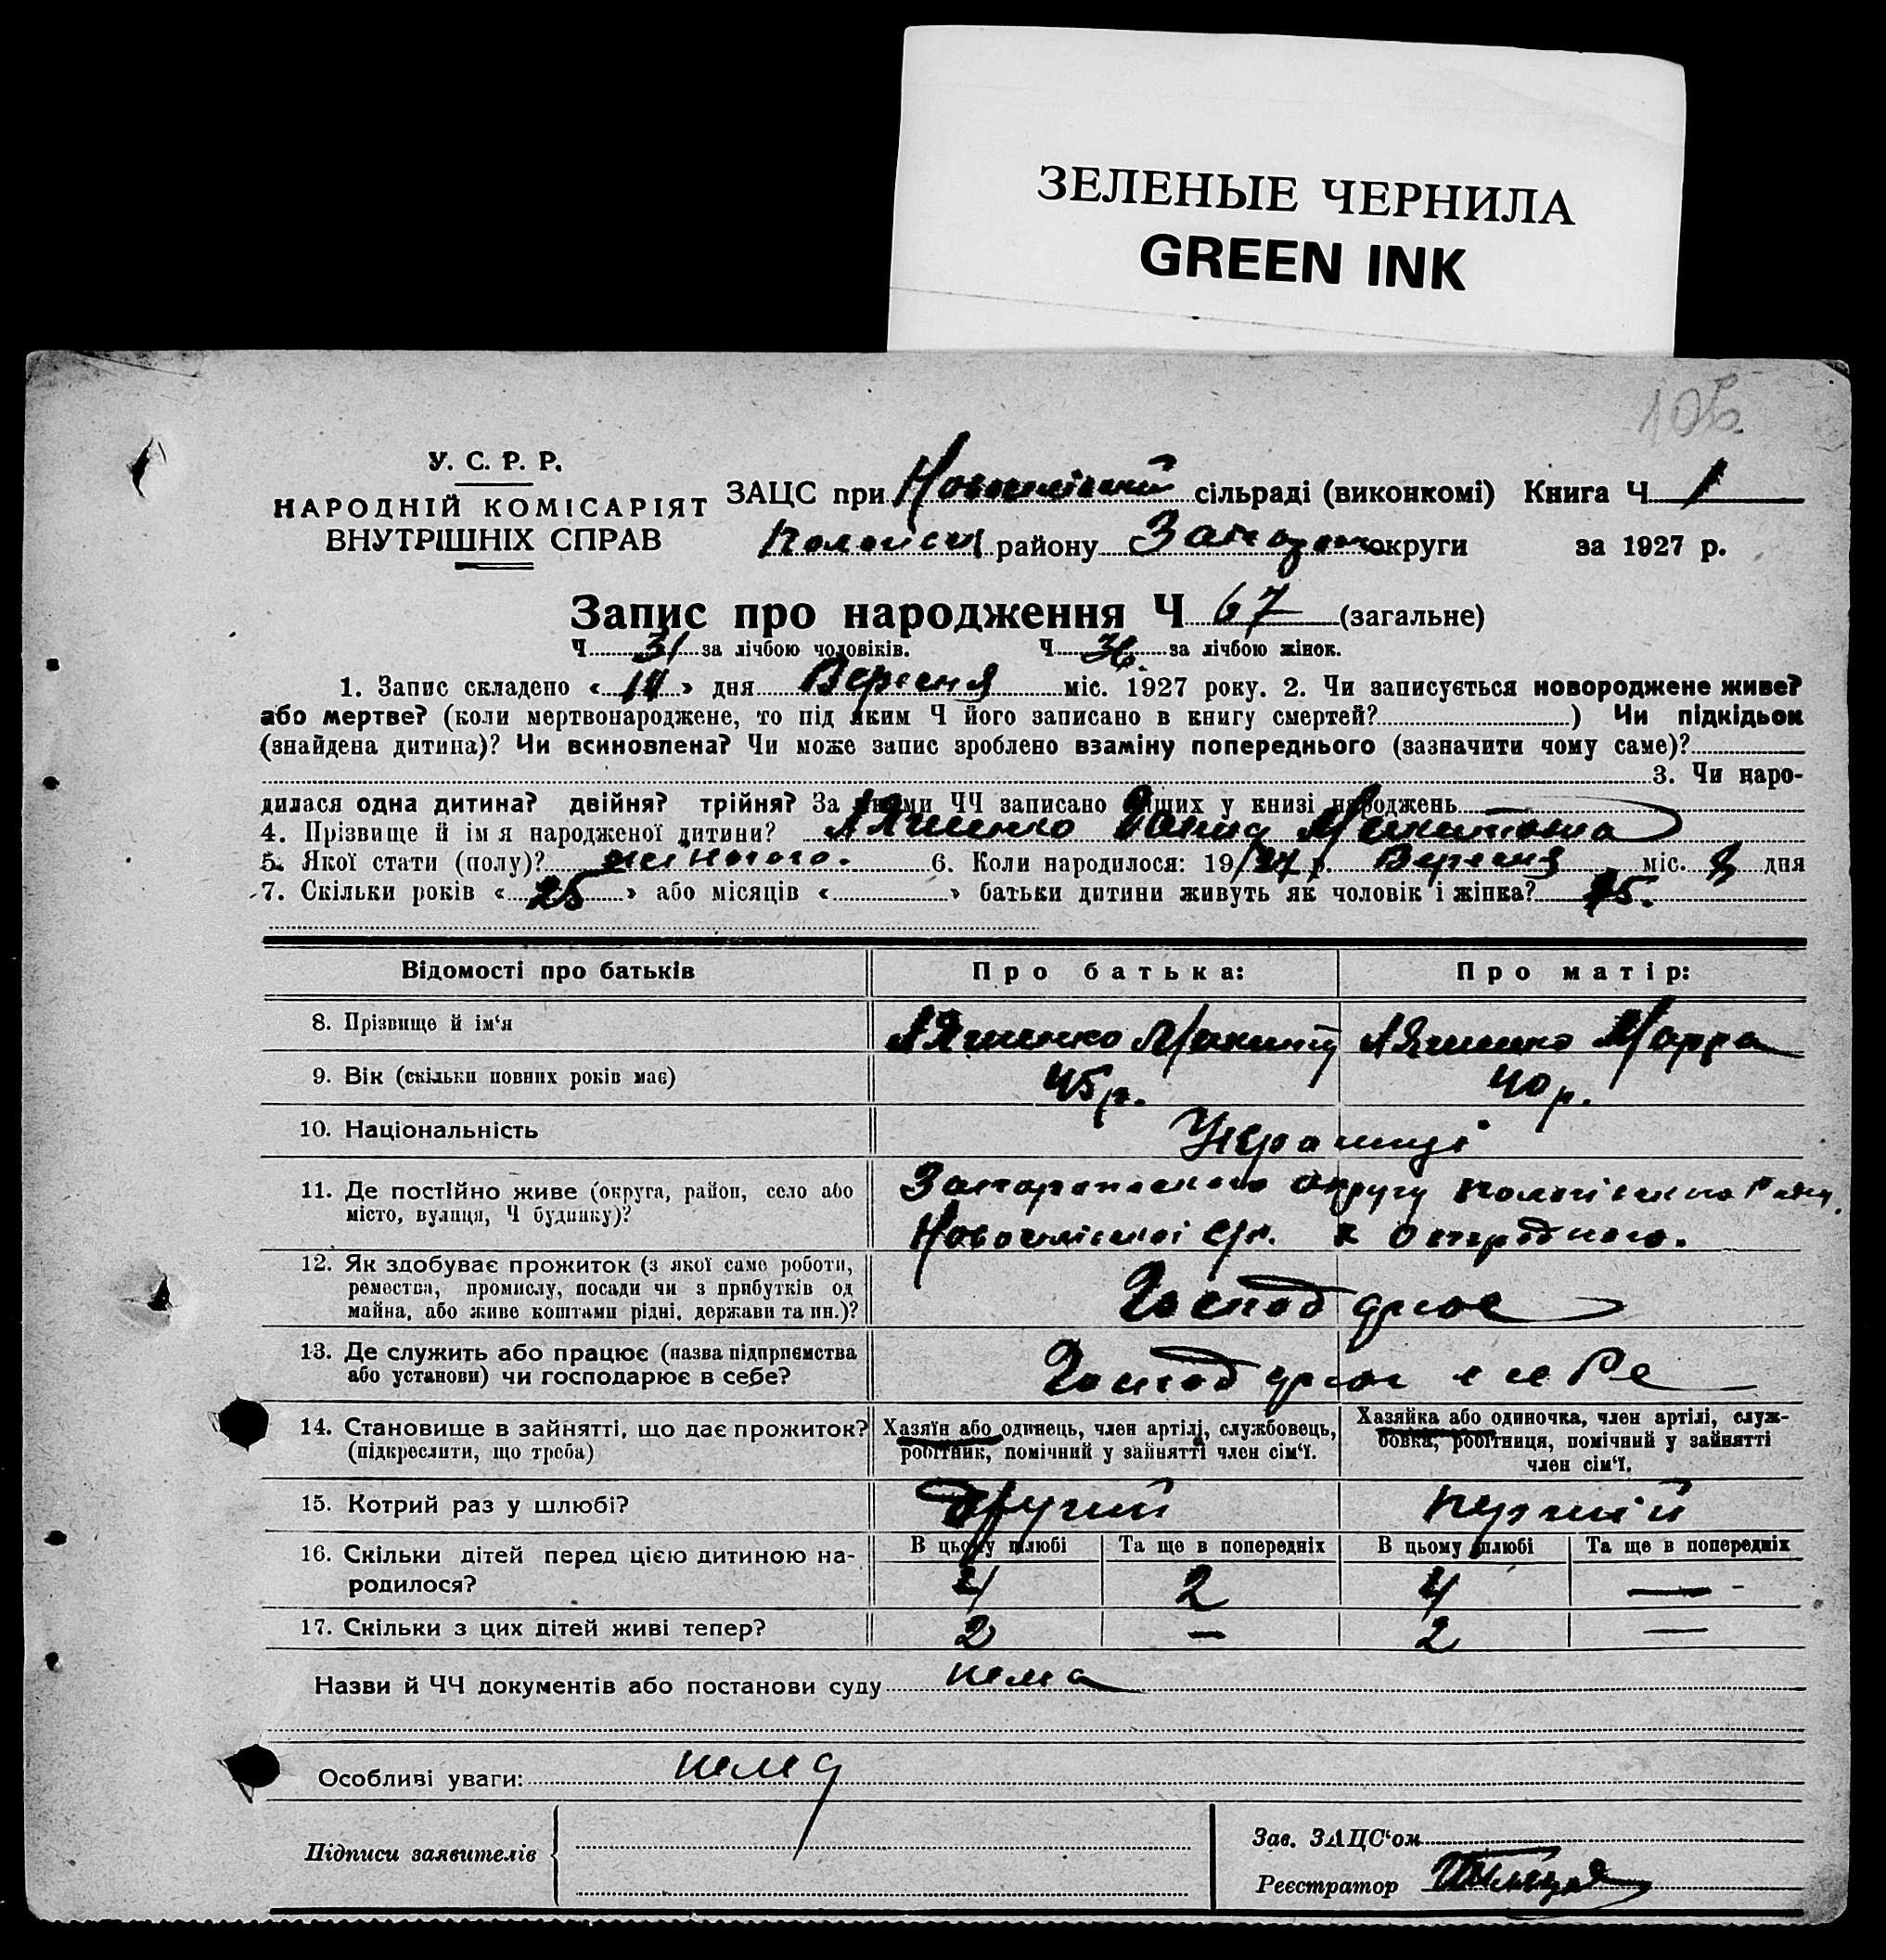 ЗЕЛЕНЫЕ ЧЕРНИЛА
GREEN INK
У. С. Р. Р.
НАРОДНІЙ КОМІСАРІЯТ
ВНУТРІШНІХ СПРАВ
ЗАЦС при сільраді (виконкомі) Книга Ч 1
району Запорож округи за 1927 р.
Запис про народження Ч 67 (загальне)
Ч 31 за лічбою чоловіків. Ч 36 за лічбою жінок.
1. Запис складено « » дня Вересня міс. 1927 року. 2. Чи записується новороджене живе?
або мертве? (коли мертвонароджене, то під яким Ч його записано в книгу смертей? ) Чи підкідьок
(знайдена дитина)? Чи всиновлена? Чи може запис зроблено взаміну попереднього (зазначити чому саме)?
3. Чи наро-
дилася одна дитина? двійня? трійня? За якими ЧЧ записано інших у книзі народжень
4. Прізвище й імя народженої дитини? Микитовна
5. Якої стати (полу)? жіночого. 6. Коли народилося: 19/27 р. Вересня міс. дня
7. Скільки років « 25 » або місяців « » батьки дитини живуть як чоловік і жінка?
Відомості про батьків
Про батька:
Про матір:
8. Прізвище й ім‘я
Микита
Марфа
9. Вік (скільки повних років має)
45 р.
40 р.
10. Національність
Українці
11. Де постійно живе (округа, район, село або
місто, вулиця, Ч будинку)?
Запорожського округу
12. Як здобуває прожиток (з якої само роботи,
ремества, промислу, посади чи з прибутків од
майна, або живе коштами рідні, держави та ин.)?
Господарює
13. Де служить або працює (назва підприємства
або установи) чи господарює в себе?
Господарює в себе
14. Становище в зайнятті, що дає прожиток?
(підкреслити, що треба)
Хазяїн або одинець, член артілі, службовець,
робітник, помічний у зайнятті член сім‘ї.
Хазяйка або одиночка, член артілі, служ-
бовка, робітниця, помічний у зайнятті
член сім‘ї.
15. Котрий раз у шлюбі?
Другий
Перший
16. Скільки дітей перед цією дитиною на-
родилося?
В цьому шлюбі
Та ще в попередніх
В цьому шлюбі
Та ще в попередніх
4
2
4
—
17. Скільки з цих дітей живі тепер?
2
—
2
—
Назви й ЧЧ документів або постанови суду нема
Особливі уваги: нема
Підписи заявителів
Зав. ЗАЦС‘ом
Реєстратор